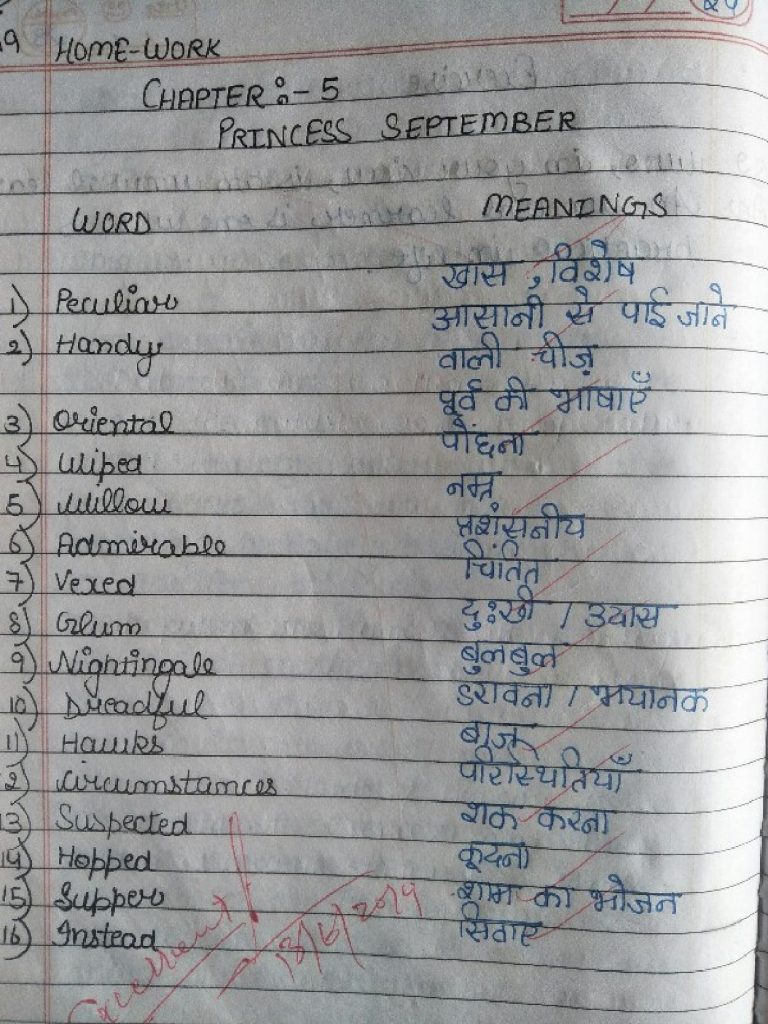 HOME-WORK
CHAPTER :- 5
PRINCESS SEPTEMBER
WORD MEANINGS
1) Peculiar खास, विशेष
2) Handy आसानी से पाई जाने
वाली चीज़
3) Oriental पूर्व की भाषाएँ
4) Wiped पोंछना
5) Willow नम्र
6) Admirable प्रशंसनीय
7) Vexed चिंतित
8) Glum दुःखी / उदास
9) Nightingale बुलबुल
10) Dreadful डरावना / भयानक
11) Hawks बाज़
2) Circumstances परिस्थितियाँ
13) Suspected शक करना
14) Hopped कूदना
15) Supper शाम का भोजन
16) Instead सिवाए
Excellent!
13/6/2019